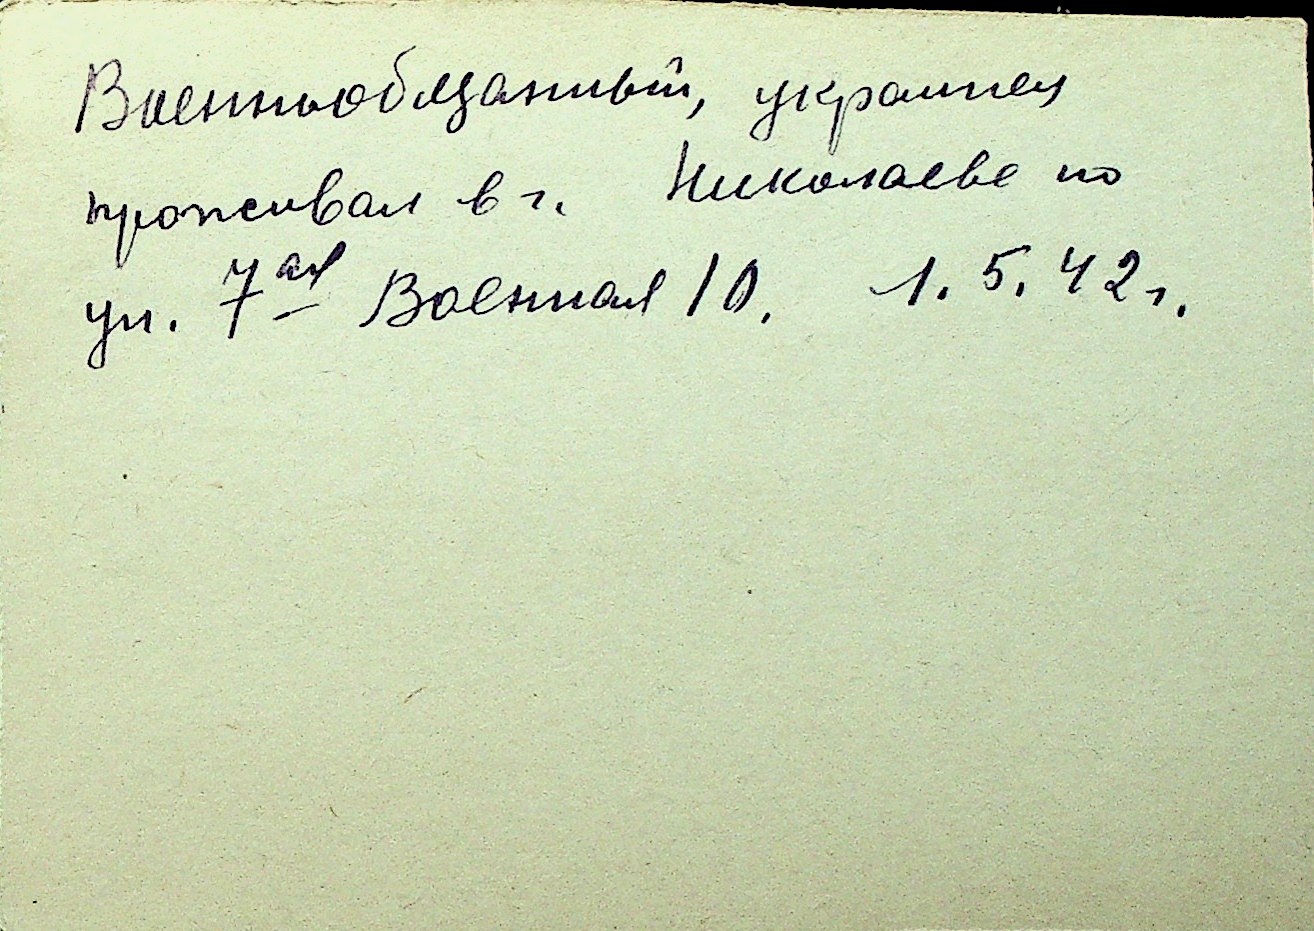 Военнообязанный, украинец
проживал в г. Николаеве по
ул. 7ая Военная 10. 1.5.42 г.